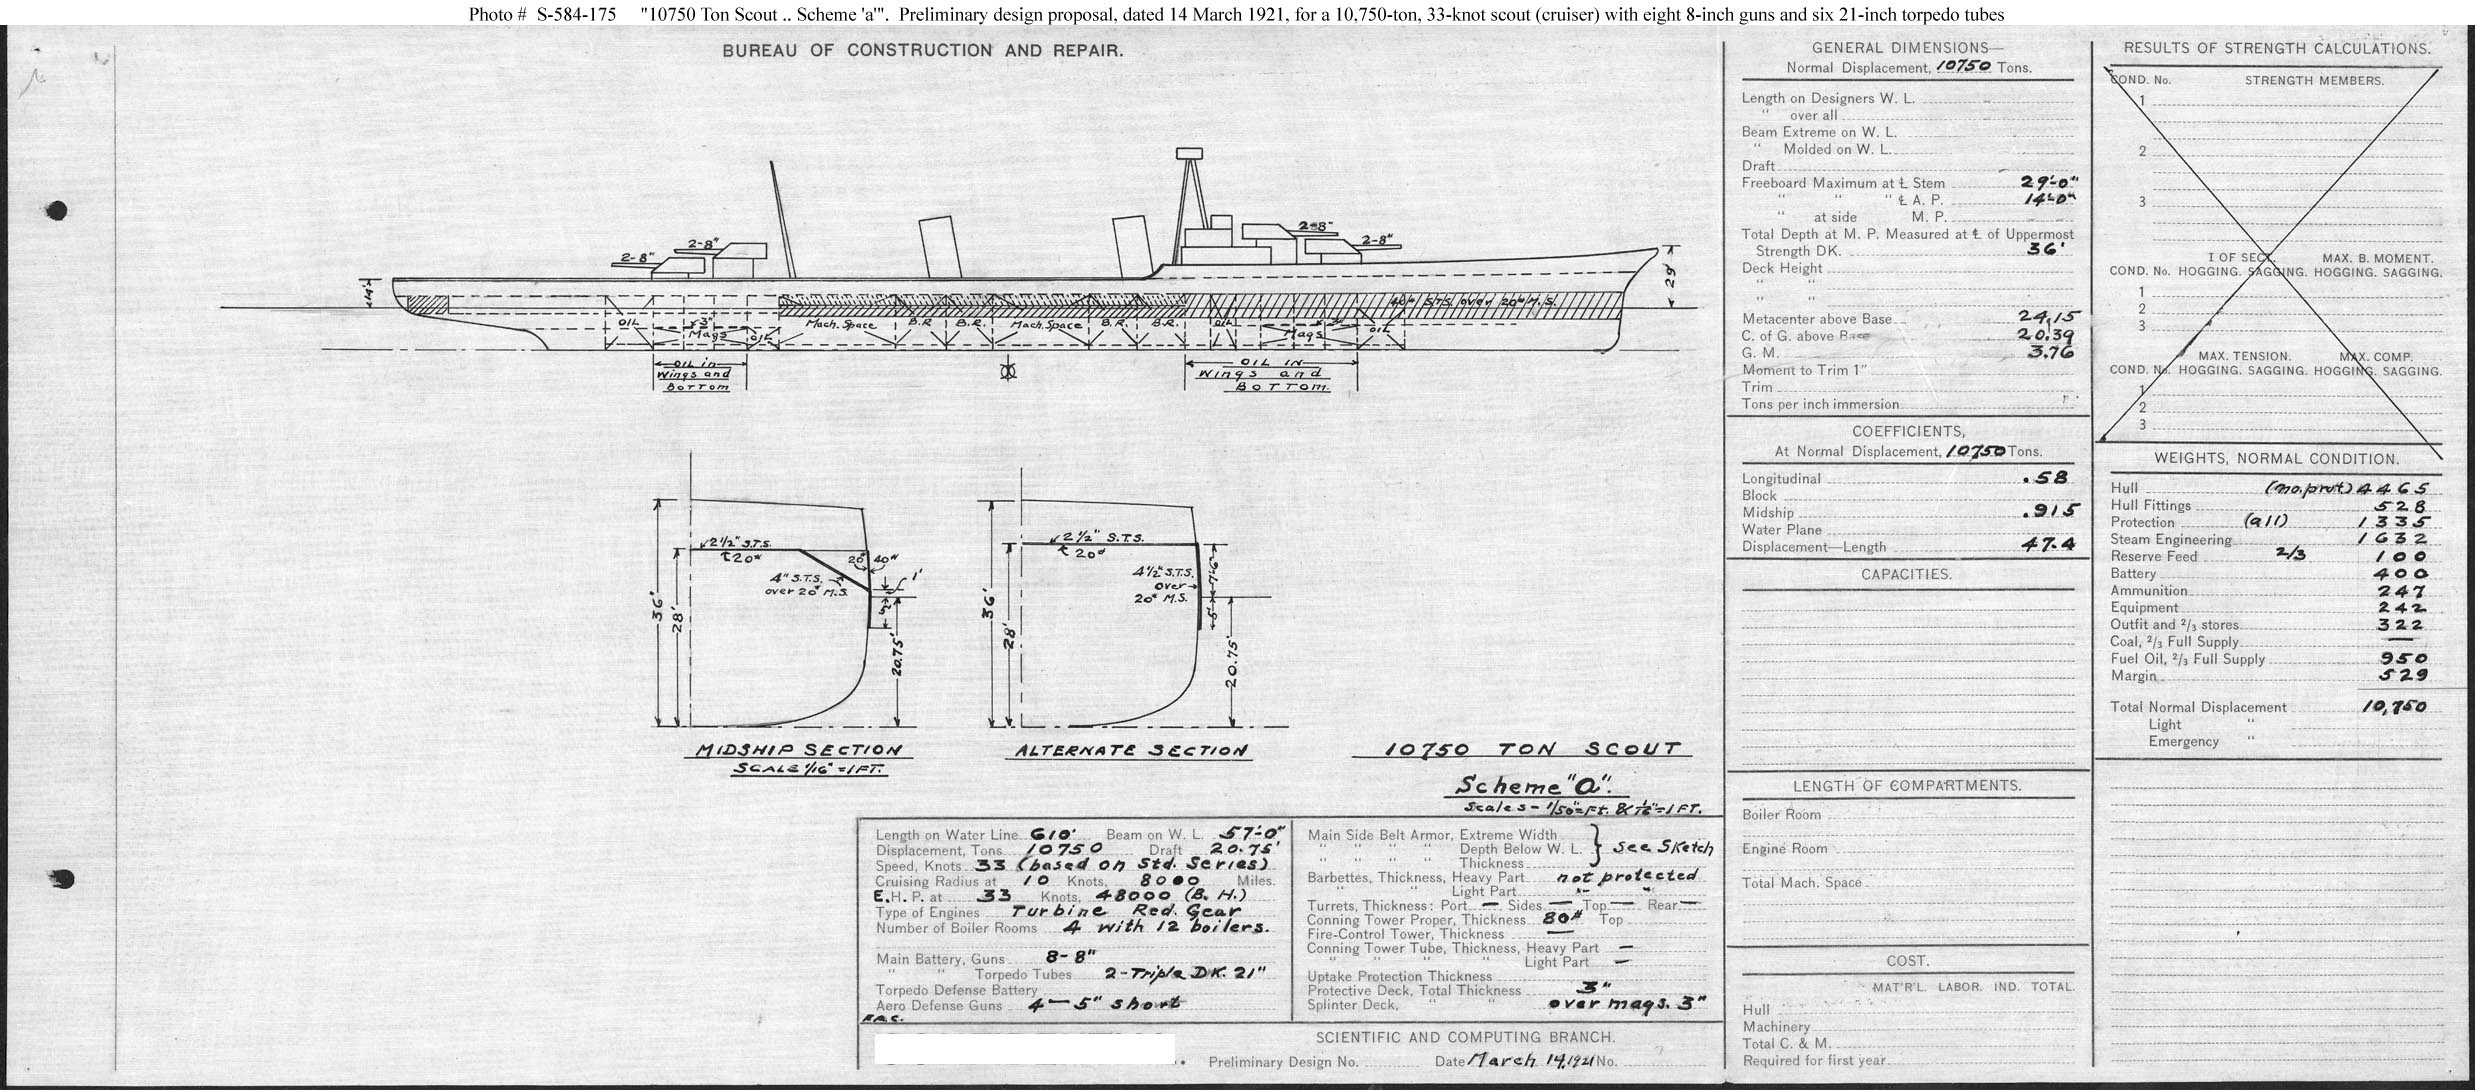 Photo # S-584-175 "10750 Ton Scout .. Scheme 'a'". Preliminary design proposal, dated 14 March 1921, for a 10,750-ton, 33-knot scout (cruiser) with eight 8-inch guns and six 21-inch torpedo tubes
BUREAU OF CONSTRUCTION AND REPAIR.
2-8"
2-8"
2-8"
2-8"
14'
29'
40# S.T.S. over 20# M.S.
OIL
3"
Mags
OIL
Mach. Space
B.R.
B.R.
Mach. Space
B.R.
B.R.
OIL
Mags
OIL
OIL in
Wings and
BOTTOM
OIL IN
Wings and
BOTTOM.
2 1/2" S.T.S.
20#
4" S.T.S.
over 20# M.S.
20# 40#
1'
5'
36'
28'
20.75'
MIDSHIP SECTION
SCALE 1/16" = 1 FT.
2 1/2" S.T.S.
20#
4 1/2" S.T.S.
over
20# M.S.
7'-6"
5'
36'
28'
20.75'
ALTERNATE SECTION
10750 TON SCOUT
Scheme "a".
Scales - 1/50" = Ft. & 1/16" = 1 FT.
Length on Water Line 610' Beam on W. L. 57'-0"
Displacement, Tons 10750 Draft 20.75'
Speed, Knots 33 (based on Std. Series)
Cruising Radius at 10 Knots, 8000 Miles.
E.H.P. at 33 Knots, 48000 (B.H.)
Type of Engines Turbine Red. Gear
Number of Boiler Rooms 4 with 12 boilers.
Main Battery, Guns 8-8"
" " Torpedo Tubes 2-Triple DK. 21"
Torpedo Defense Battery
Aero Defense Guns 4-5" short
Main Side Belt Armor, Extreme Width
" " " " Depth Below W. L. } See Sketch
" " " " Thickness
Barbettes, Thickness, Heavy Part not protected
" " Light Part " "
Turrets, Thickness: Port — Sides — Top — Rear —
Conning Tower Proper, Thickness 80# Top
Fire-Control Tower, Thickness —
Conning Tower Tube, Thickness, Heavy Part —
" " " " Light Part —
Uptake Protection Thickness
Protective Deck, Total Thickness 3"
Splinter Deck, " " over mags. 3"
SCIENTIFIC AND COMPUTING BRANCH.
Preliminary Design No. Date March 14, 1921 No.
GENERAL DIMENSIONS—
Normal Displacement, 10750 Tons.
Length on Designers W. L.
" over all
Beam Extreme on W. L.
" Molded on W. L.
Draft
Freeboard Maximum at ℄ Stem 29'-0"
" " " ℄ A. P. 14'-0"
" at side M. P.
Total Depth at M. P. Measured at ℄ of Uppermost
Strength DK. 36'
Deck Height
" "
" "
Metacenter above Base 24.15
C. of G. above Base 20.39
G. M. 3.76
Moment to Trim 1"
Trim
Tons per inch immersion
COEFFICIENTS,
At Normal Displacement, 10750 Tons.
Longitudinal .58
Block
Midship .915
Water Plane
Displacement—Length 47.4
CAPACITIES.
LENGTH OF COMPARTMENTS.
Boiler Room
Engine Room
Total Mach. Space
COST.
MAT'R'L. LABOR. IND. TOTAL.
Hull
Machinery
Total C. & M.
Required for first year
RESULTS OF STRENGTH CALCULATIONS.
COND. No. STRENGTH MEMBERS.
1
2
3
I OF SEC. MAX. B. MOMENT.
COND. No. HOGGING. SAGGING. HOGGING. SAGGING.
1
2
3
MAX. TENSION. MAX. COMP.
COND. No. HOGGING. SAGGING. HOGGING. SAGGING.
1
2
3
WEIGHTS, NORMAL CONDITION.
Hull (no. prot) 4465
Hull Fittings 528
Protection (all) 1335
Steam Engineering 1632
Reserve Feed 2/3 100
Battery 400
Ammunition 247
Equipment 242
Outfit and 2/3 stores 322
Coal, 2/3 Full Supply —
Fuel Oil, 2/3 Full Supply 950
Margin 529
Total Normal Displacement 10,750
Light "
Emergency "